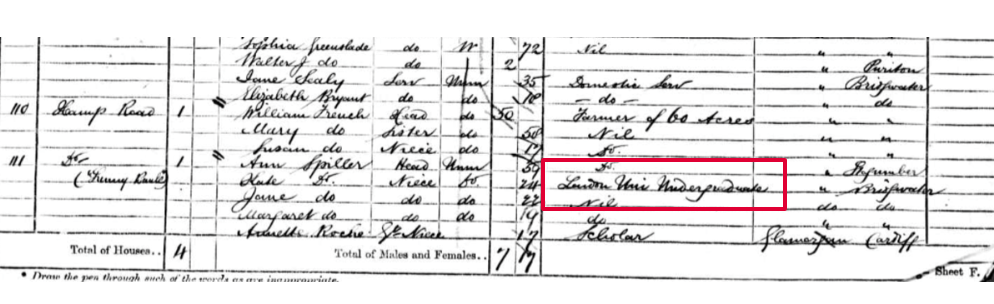 Sophia Greenslade do W 72 Nil " "
Walter J do do 2 " Puriton
Jane Sealy Serv Unm 35 Domestic Serv " Bridgwater
Elizabeth Bryant do do 18 - do - " do
110 Hamp Road 1 William French Head do 50 Farmer of 60 Acres " "
Mary do Sister do 58 Nil " "
Susan do Niece do 17 Do. " "
111 Do. 1 Ann Spiller Head Unm 59 Do. "
Kate Do. Niece Do. 24 London Uni Undergraduate " Bridgwater
Jane do do do 22 Nil do do
Margaret do do do 19 do "
Annette Gt Niece 17 Scholar Glamorgan Cardiff
Total of Houses.. 4 Total of Males and Females.. 7 17
* Draw the pen through such of the words as are inappropriate. Sheet F.